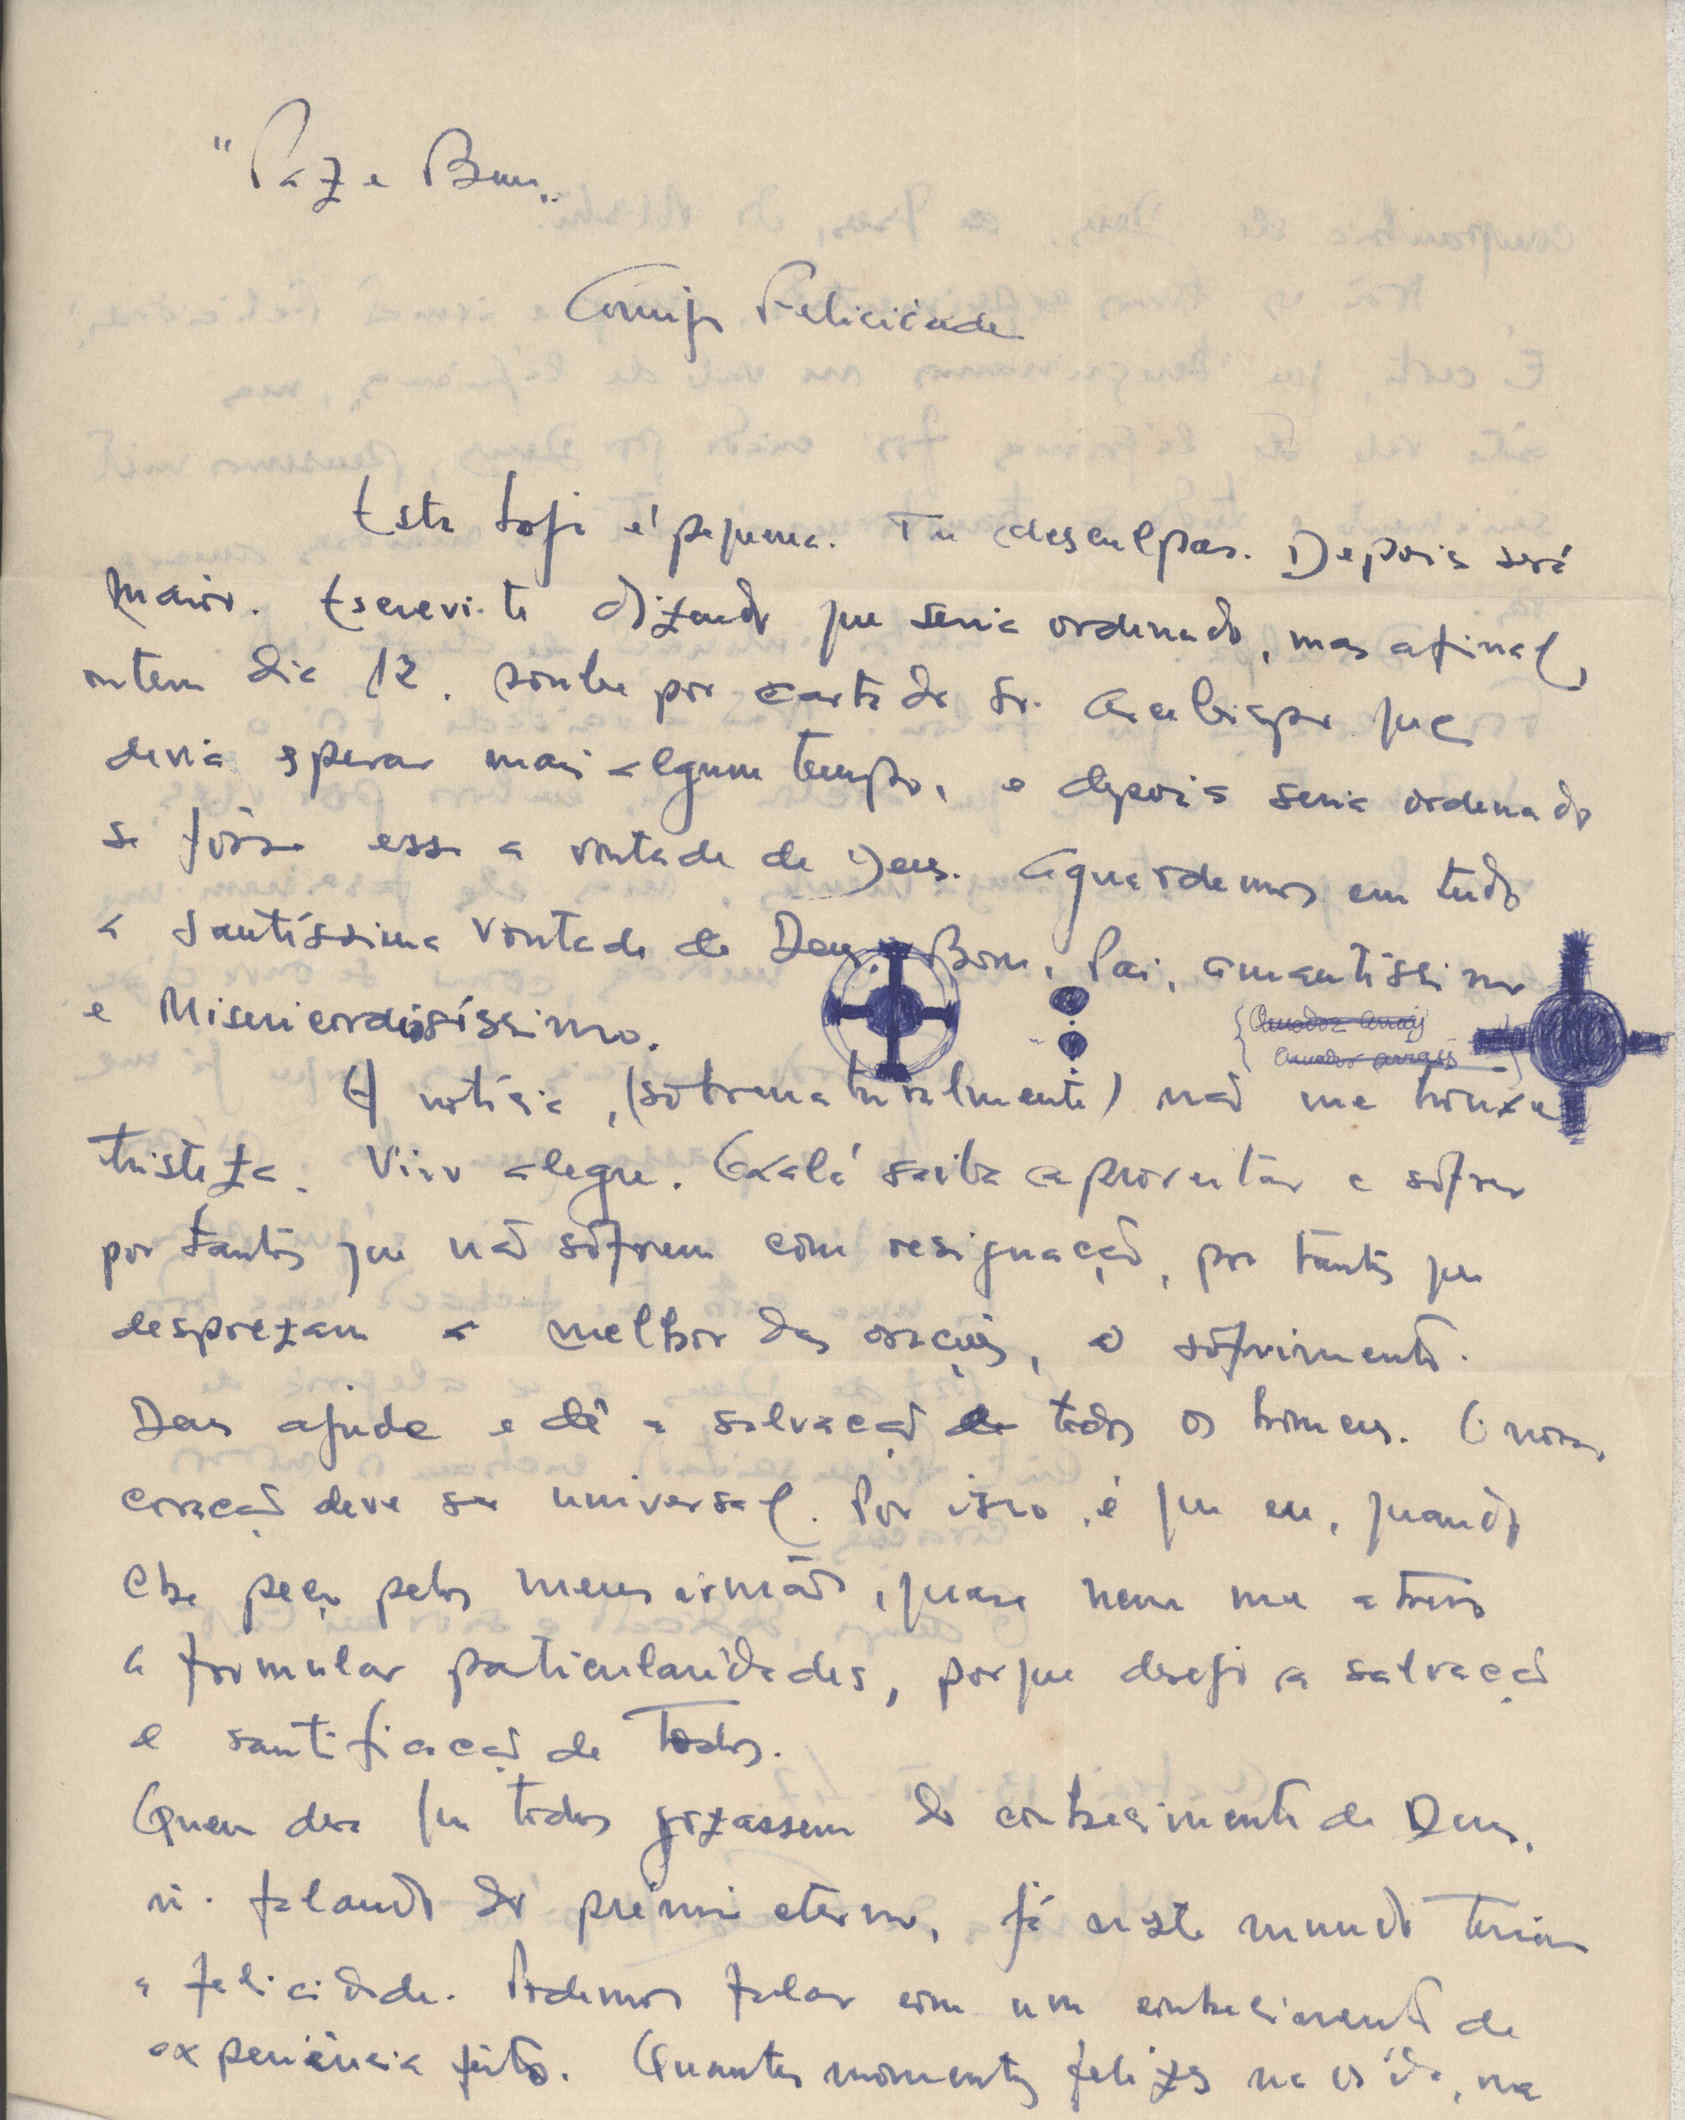 "Paz e Bem"
Amiga Felicidade
Esta hoje é pequena. Tu desculpas. Depois será
maior. Escrevi-te dizendo que seria ordenado, mas afinal,
ontem dia 12, soube por carta do Sr. Arcebispo que
devia esperar mais algum tempo, e depois seria ordenado
se fôsse essa a vontade de Deus. Aguardemos em tudo
a Santíssima Vontade de Deus, Bom, Pai, amantíssimo
e Misericordiosíssimo.
{Amador Arrais
Amador Arrais}
A notícia, (sobrenaturalmente) não me trouxe
tristeza. Vivo alegre. Oxalá saiba aproveitar e sofrer
por tantos que não sofrem com resignação, por tantos que
desprezam a melhor das orações, o sofrimento.
Deus ajude e dê a salvação de todos os homens. O nosso
coração deve ser universal. Por isso, é que eu, quando
Lhe peço pelos meus irmãos, quase nem me atrevo
a formular particularidades, porque desejo a salvação
e santificação de Todos.
Quem dera que todos gozassem do conhecimento de Deus,
n. falando do prémio eterno, já neste mundo teriam
a felicidade. Podemos falar com um conhecimento de
experiência feito. Quantos momentos felizes na vida, na